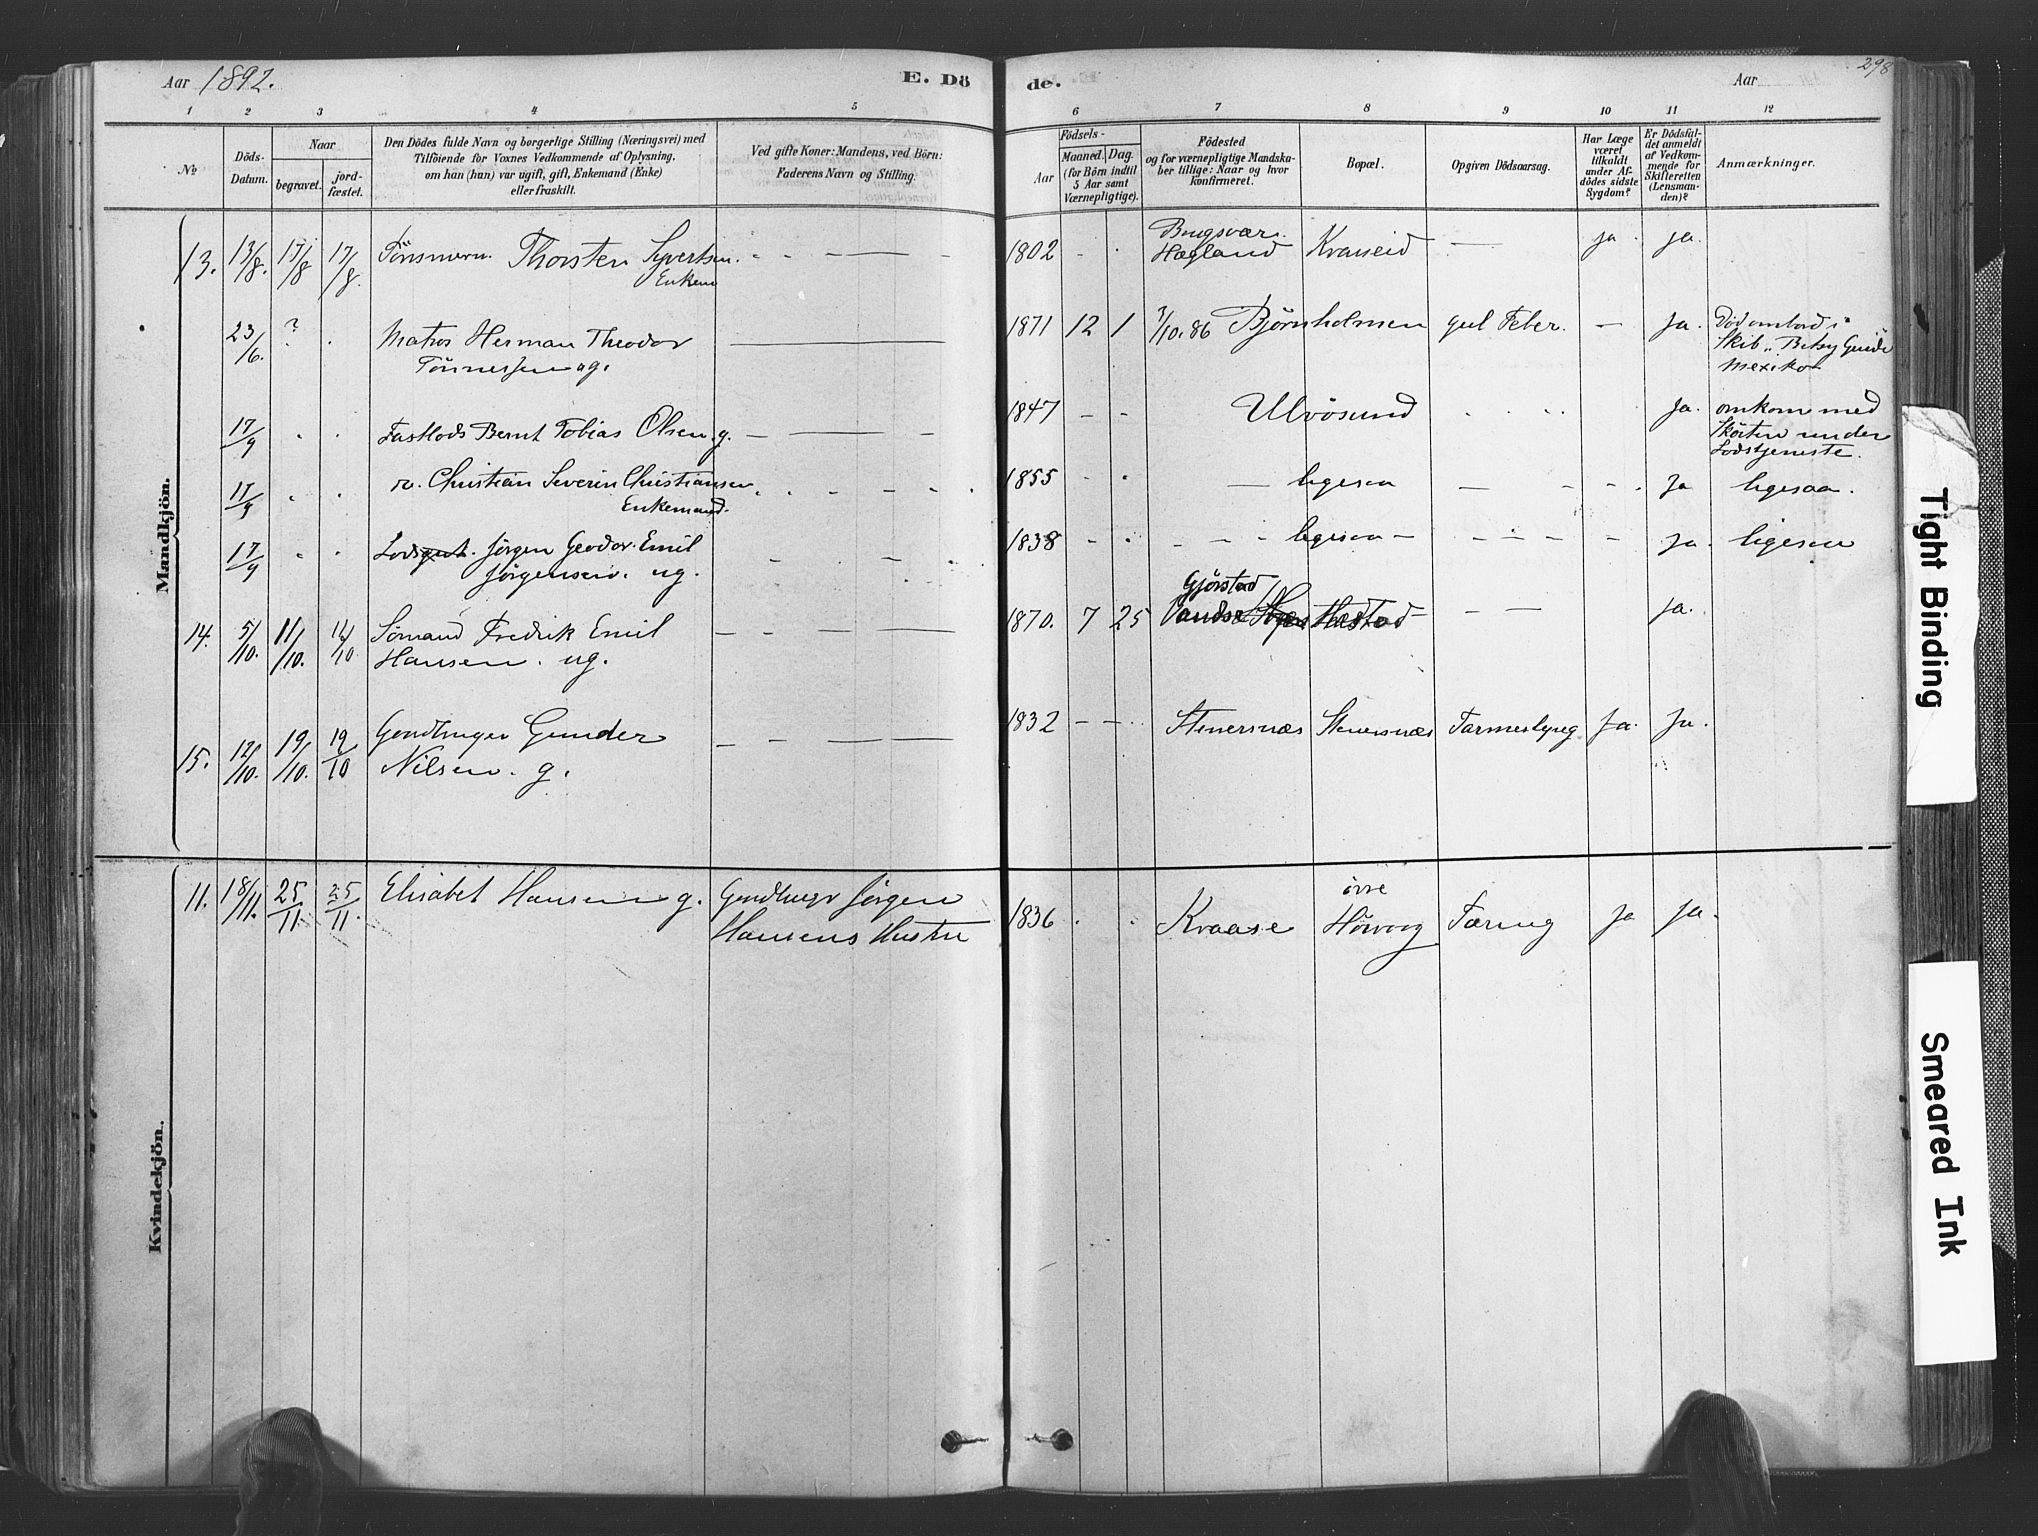 Aar 1892.
E. Dö
de.
Aar
298
1 2 3 4 5 6 7 8 9 10 11 12
No
Döds-
Datum.
Naar
begravet.
jord-
fæstet.
Den Dödes fulde Navn og borgerlige Stilling (Næringsvei) med
Tilföiende for Voxnes Vedkommende af Oplysning,
om han (hun) var ugift, gift, Enkemand (Enke)
eller fraskilt.
Ved gifte Koner: Mandens, ved Börn:
Faderens Navn og Stilling.
Födsels-
Aar
Maaned.
Dag.
(for Börn indtil
5 Aar samt
Værnepligtige).
Födested
og for værnepligtige Mandska-
ber tillige: Naar og hvor
konfirmeret.
Bopæl.
Opgiven Dödsaarsag.
Har Læge
været
tilkaldt
under Af-
dödes sidste
Sygdom?
Er Dödsfal-
det anmeldt
af Vedkom-
mende for
Skifteretten
(Lensman-
den)?
Anmærkninger.
Mandkjön.
13. 13/8. 17/8 17/8. Thorsten Syvertsen. 1802 Hægland Kvaseid — ja. ja.
Enkem
23/6. ? Matros Herman Theodor 1871 12 1 /10.86 Björnholmen gul Feber. — ja. Död ombord i
Tönnessen ug. Skib „Betsy
Mexiko
17/9 Fastlods Bernt Tobias Olsen. g. 1847 Ulvösund ja. omkom med
Sköiten under
Lodstjeneste.
17/9 Christian Severin Christiansen 1855 — ligesaa — ja ligesaa.
Enkemand.
17/9 Jörgen Emil 1838 ligesaa — ja. ligesaa
Jörgensen. ug.
14. 5/10. 11/10. 11/10 Sömand Fredrik Emil 1870. 7 25 Gjörstad Hæstad — ja.
Hansen. ug.
15. 12/10. 19/10. 19/10 Gunder 1832 Stenersnæs Stenersnæs ja. ja.
Nilsen. g.
Kvindekjön.
11. 18/11. 25/11. 25/11. Elisabet Hansen g. Jörgen 1836 Kraase Tæring ja ja.
Hansens Hustru
Tight Binding
Smeared Ink